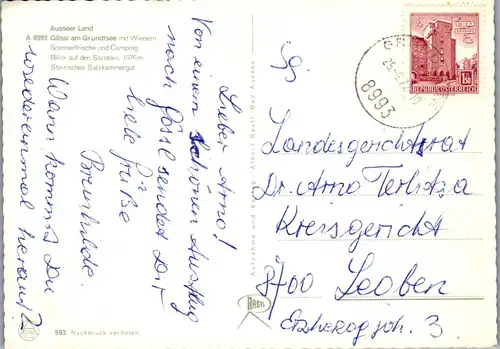 Ausseer Land
A 8993 Gössl am Grundlsee mit Wienern
Sommerfrische und Camping
Blick auf den Sarstein, 1976m
Steirisches Salzkammergut.
Lieber Arno!
Von einem schönen Ausflug
nach Gössl sendet Dir
liebe Grüße
Brunhilde.
Wann kommst Du
wiedereinmal herauf?
593 Nachdruck verboten
RASTL
8993
150
REPUBLIK ÖSTERREICH
Landesgerichtsrat
Dr. Arno Terlitza
Kreisgericht
8700 Leoben
Erzherzog Joh. 3